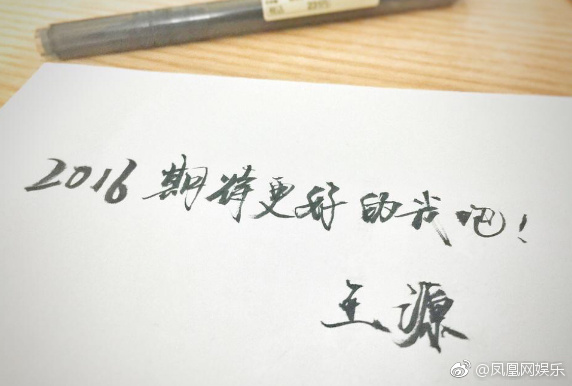 2016 期待更好的我吧!
王源
@凤凰网娱乐